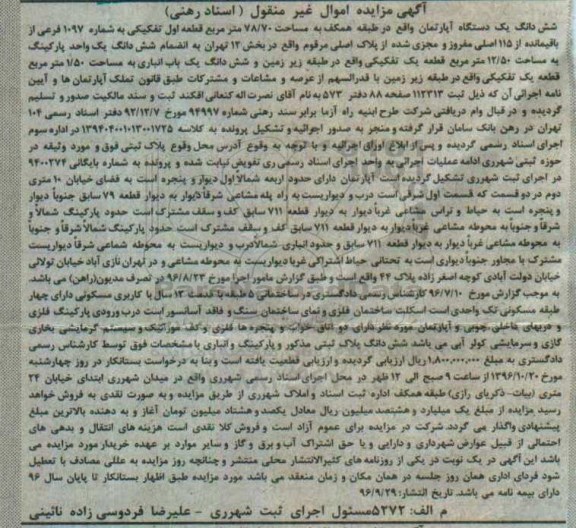 آگهی مزایده اموال غیر منقول (اسناد رهنی)
شش دانگ یک دستگاه آپارتمان واقع در طبقه همکف به مساحت ۷۸/۷۰ متر مربع قطعه اول تفکیکی به شماره ۱۰۹۷ فرعی از
باقیمانده از ۱۱۵ اصلی مفروز و مجزی شده از پلاک اصلی مرقوم واقع در بخش ۱۲ تهران به انضمام شش دانگ یک واحد پارکینگ
به مساحت ۱۲/۵۰ متر مربع قطعه یک تفکیکی واقع در طبقه زیر زمین و شش دانگ یک باب انباری به مساحت ۱/۵۰ متر مربع
قطعه یک تفکیکی واقع در طبقه زیر زمین با قدرالسهم از عرصه و مشاعات و مشترکات طبق قانون تملک آپارتمان ها و آیین
نامه اجرائی آن که ذیل ثبت ۱۱۲۳۱۳ صفحه ۸۸ دفتر ۵۷۳ به نام آقای نصرت اله کنعانی افکند ثبت و سند مالکیت صدور و تسلیم
گردیده و در قبال وام دریافتی شرکت طرح ابنیه راه آزما برابر سند رهنی شماره ۹۴۹۹۷ مورخ ۹۳/۱۲/۷ دفتر اسناد رسمی ۱۰۴
تهران در رهن بانک سامان قرار گرفته و منجر به صدور اجرائیه و تشکیل پرونده به کلاسه ۱۳۹۴۰۴۰۰۱۰۱۳۰۰۱۷۲۵ در اداره سوم
اجرای اسناد رسمی گردیده و پس از ابلاغ اوراق اجرائیه و با توجه به وقوع آدرس محل وقوع پلاک ثبتی فوق و مورد وثیقه در
حوزه ثبتی شهرری ادامه عملیات اجرائی به واحد اجرای اسناد رسمی ری تفویض نیابت شده و پرونده به شماره بایگانی ۹۴۰۰۲۷۴
در اجرای ثبت شهرری تشکیل گردیده است آپارتمان دارای حدود اربعه شمالا اول دیوار و پنجره است به فضای خیابان ۱۰ متری
دوم در دو قسمت که قسمت اول شرقی است درب و دیواریست به راه پله مشاعی شرقا دیوار به دیوار قطعه ۷۹ سابق جنوبا دیوار
و پنجره است به حیاط و تراس مشاعی غربا دیوار به دیوار قطعه ۷۱۱ سابق کف و سقف مشترک است حدود پارکینگ شمالا و
شرقا و جنوبا به محوطه مشاعی غربا دیوار به دیوار قطعه ۷۱۱ سابق کف و سقف مشترک است حدود پارکینگ شمالا شرقا و جنوبا
به محوطه مشاعی غربا دیوار به دیوار قطعه ۷۱۱ سابق و حدود انباری شمالا درب و دیواریست به محوطه شماعی شرقا دیواریست
مشترک با مجاور جنوبا دیواری است به تحتانی حیاط اشتراکی غربا دیواریست به محوطه مشاعی و در تهران نازی آباد خیابان تولائی
خیابان دولت آبادی کوچه اصغر زاده پلاک ۴۴ واقع است و طبق گزارش مامور اجرا مورخ ۹۶/۸/۲۳ در تصرف مدیون (راهن) می باشد.
به موجب گزارش مورخ ۹۶/۷/۱۰ کارشناس رسمی دادگستری در ساختمانی ۵ طبقه با قدمت ۱۳ سال با کاربری مسکونی دارای چهار
طبقه مسکونی تک واحدی است اسکلت ساختمان فلزی و نمای ساختمان سنگ و فاقد آسانسور است درب ورودی پارکینگ فلزی
و دربهای داخلی چوبی و آپارتمان مورد نظر دارای دو اتاق خواب و پنجره ها فلزی و کف موزائیک و سیستم گرمایشی بخاری
گازی و سرمایشی کولر آبی می باشد شش دانگ پلاک ثبتی مذکور و پارکینگ و انباری با مشخصات فوق توسط کارشناس رسمی
دادگستری به مبلغ ۱,۸۰۰,۰۰۰,۰۰۰ ریال ارزیابی گردیده و ارزیابی قطعیت یافته است و بنا به درخواست بستانکار در روز چهارشنبه
مورخ ۱۳۹۶/۱۰/۲۰ از ساعت ۹ صبح الی ۱۲ ظهر در محل اجرای اسناد رسمی شهرری واقع در میدان شهرری ابتدای خیابان ۲۴
متری (بیات-ذکریای رازی) طبقه همکف اداره ثبت اسناد و املاک شهرری از طریق مزایده و به صورت نقدی به فروش خواهد
رسید مزایده از مبلغ یک میلیارد و هشتصد میلیون ریال معادل یکصد و هشتاد میلیون تومان آغاز و به دهنده بالاترین مبلغ
پیشنهادی واگذار می گردد. شرکت در مزایده برای عموم آزاد است و فروش کلا نقدی است هزینه های انتقال و بدهی های
احتمالی از قبیل عوارض شهرداری و دارایی و یا حق اشتراک آب و برق و گاز و سایر موارد بر عهده خریدار مورد مزایده می
باشد این آگهی در یک نوبت در یکی از روزنامه های کثیرالانتشار محلی منتشر و چنانچه روز مزایده به عللی مصادف با تعطیل
شود فردای اداری همان روز جلسه در همان مکان و زمان منعقد می باشد مورد مزایده طبق اظهار بستانکار تا پایان سال ۹۶
دارای بیمه نامه می باشد. تاریخ انتشار: ۹۶/۹/۲۹
م الف: ۵۲۷۲ مسئول اجرای ثبت شهرری - علیرضا فردوسی زاده نائینی